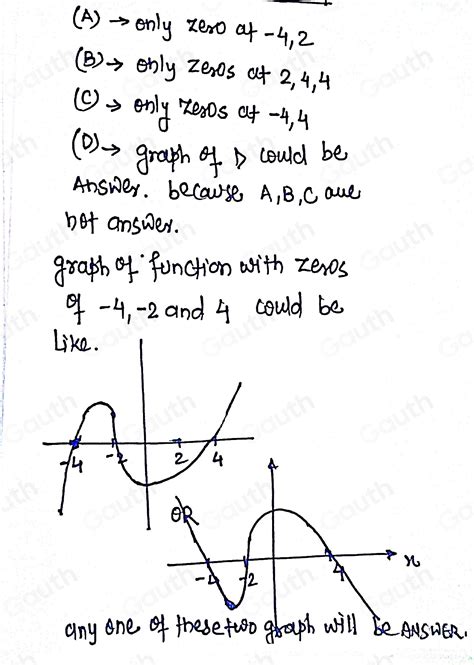 (A) → only zero at -4,2
(B) → only zeros at 2,4,4
(C) → only zeros at -4,4
(D) → graph of D could be
Answer. because A,B,C are
not answer.
graph of function with zeros
of -4,-2 and 4 could be
Like.
-4 -2 2 4
OR
-4 -2 4 x
any one of these two graph will be ANSWER.
Gauth